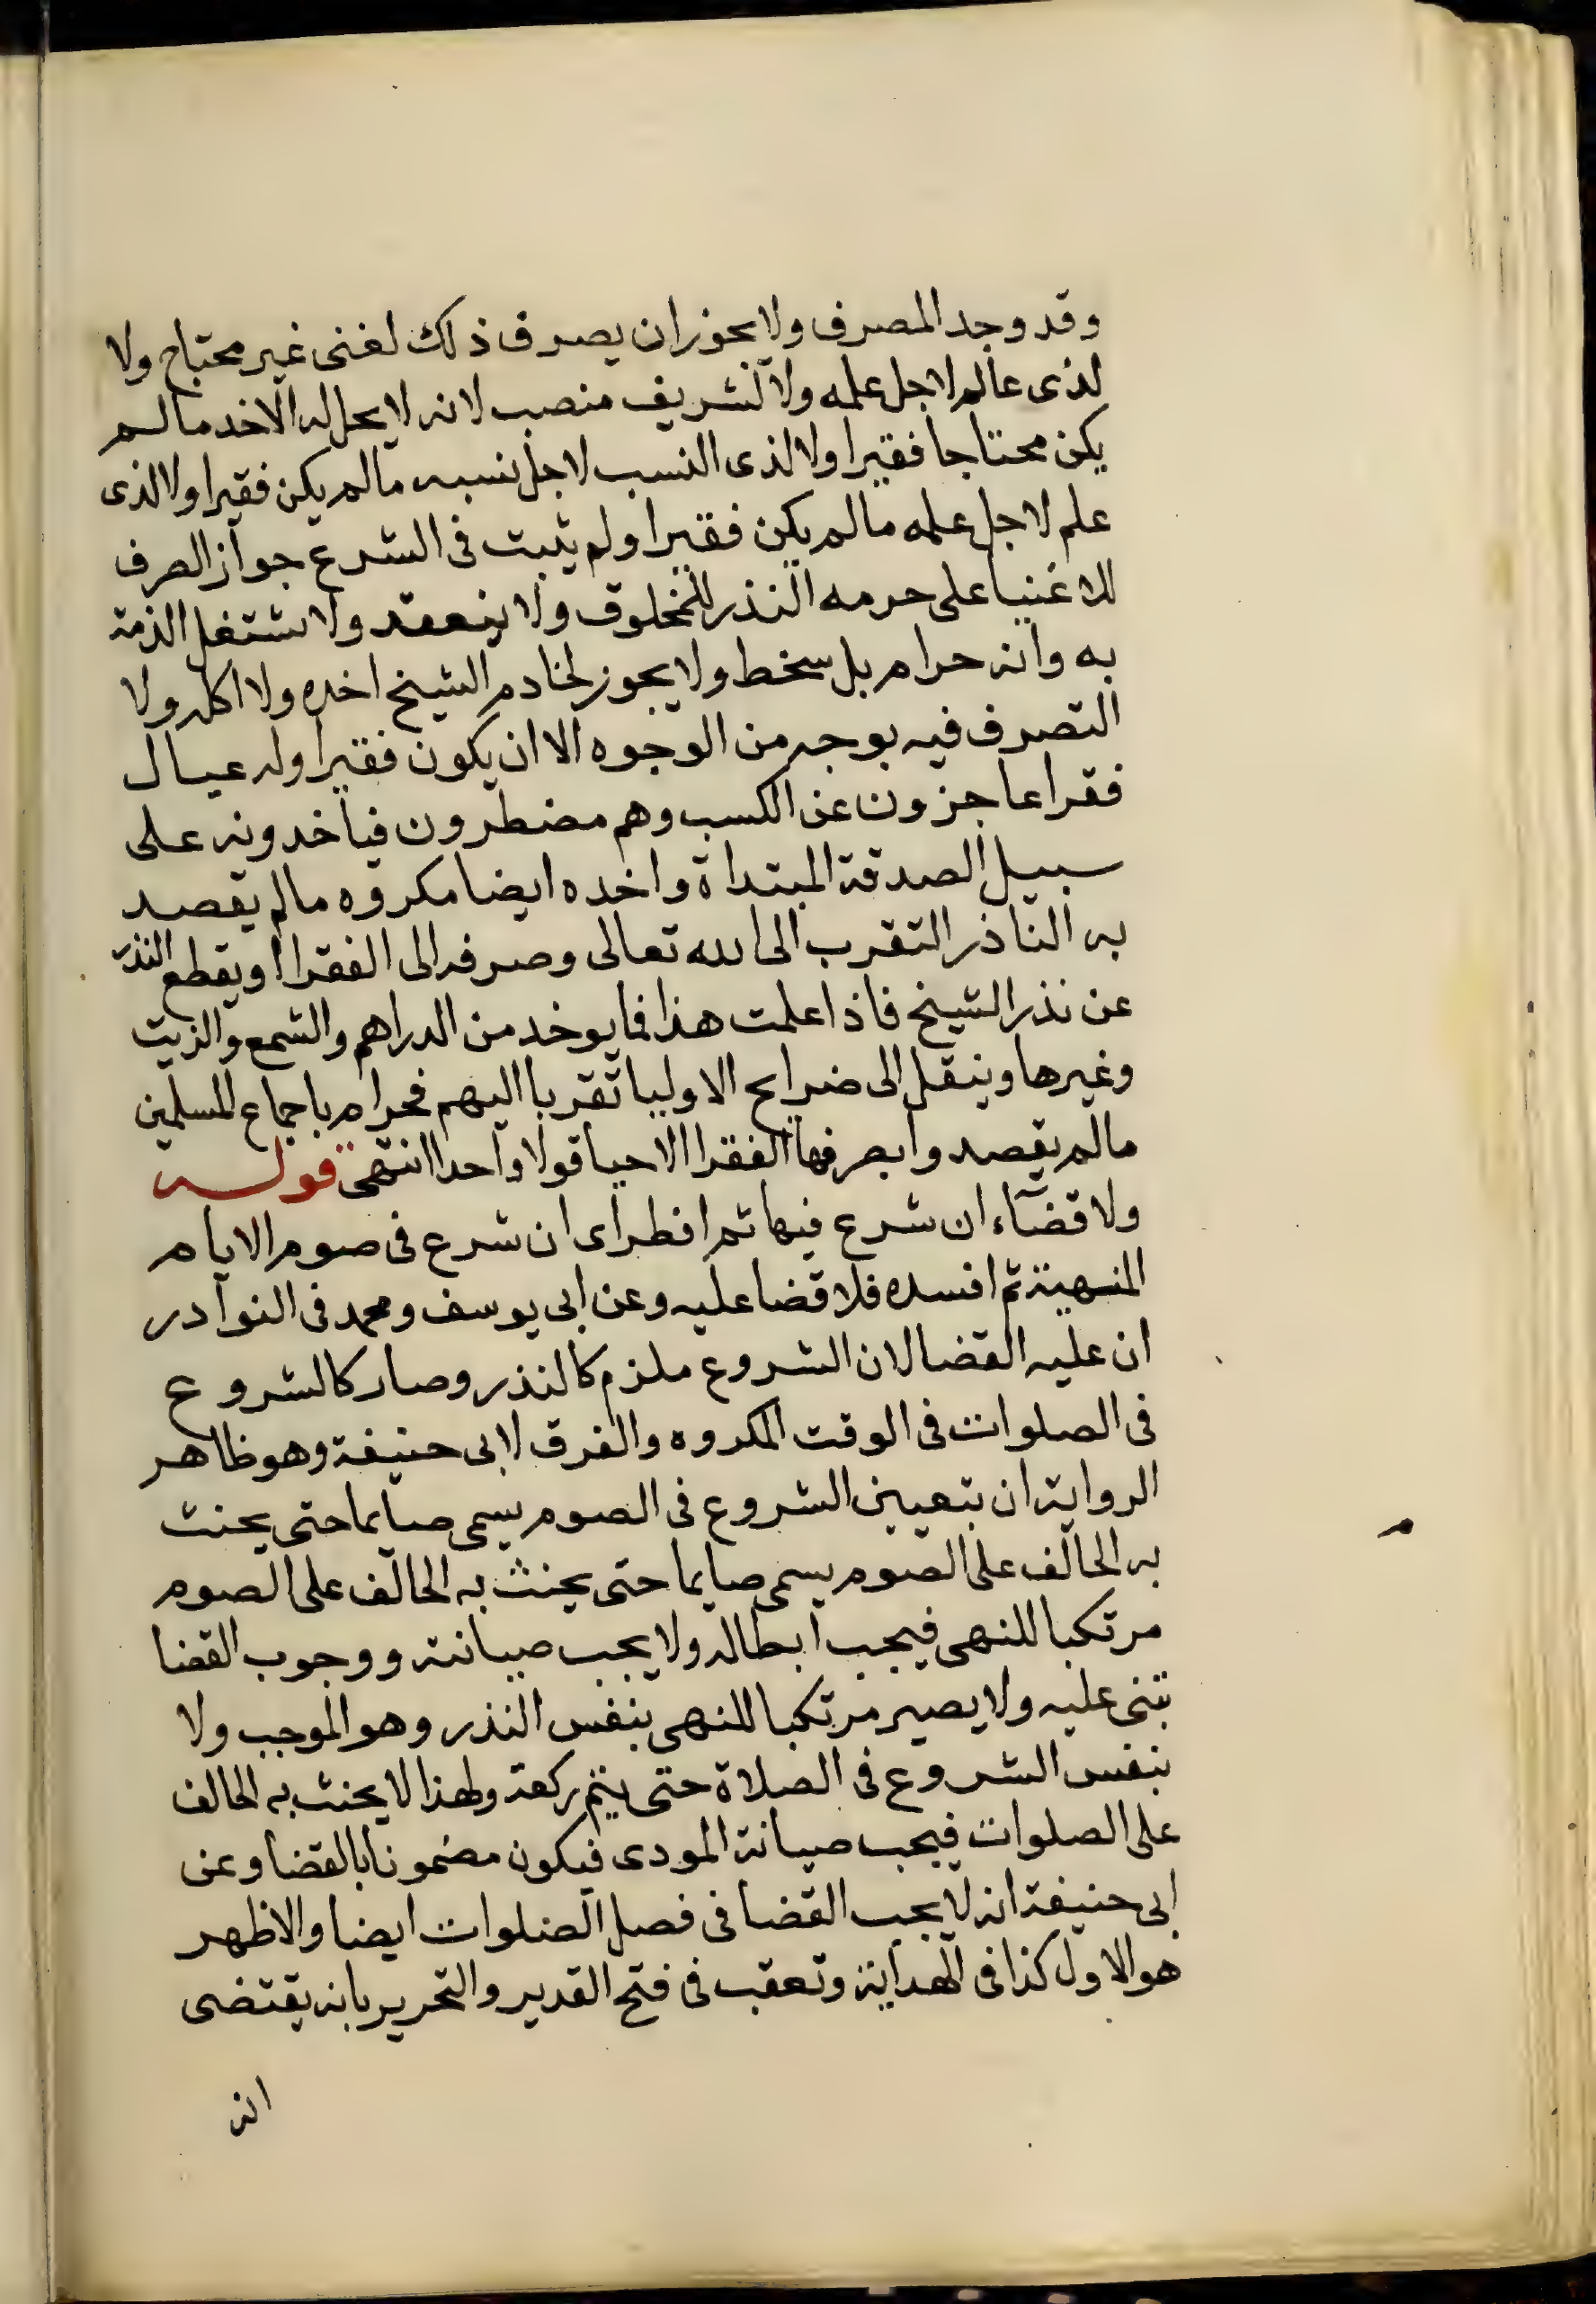 وقد وجد المصرف ولا يجوز ان يصرف ذلك لغنى غير محتاج ولا
لذى عالم لاجل علمه ولا لشريف منصب لانه لا يحل له الاخد مالم
يكن محتاجا فقيرا ولا لذى النسب لاجل نسبه مالم يكن فقيرا ولا لذى
علم لاجل علمه مالم يكن فقيرا ولم يثبت فى الشرع جواز الصرف
للاغنيا على حرمه النذر للمخلوق ولا ينعقد ولا تشتغل الذمة
به وانه حرام بل سخط ولا يجوز لخادم الشيخ اخده ولا اكله ولا
التصرف فيه بوجه من الوجوه الا ان يكون فقيرا وله عيال
فقرا عاجزون عن الكسب وهم مضطرون فياخدونه على
سبيل الصدقة المبتداة واخده ايضا مكروه مالم يقصد
به الناذر التقرب الى الله تعالى وصرفه الى الفقرا ويقطع النذر
عن نذر الشيخ فاذا علمت هذا فما يوخد من الدراهم والشمع والزيت
وغيرها وينقل الى ضرايح الاوليا تقربا اليهم فحرام باجماع المسلمين
مالم يقصدوا بصرفها الفقرا الاحيا قولا واحدا انتهى قوله
ولا قضآء ان شرع فيها ثم افطر اى ان شرع فى صوم الايام
المنهية ثم افسده فلا قضا عليه وعن ابى يوسف ومحمد فى النوادر
ان عليه القضا لان الشروع ملزم كالنذر وصار كالشروع
فى الصلوات فى الوقت المكروه والفرق لابى حنيفة وهو ظاهر
الرواية ان بتعيين الشروع فى الصوم يسمى صايما حتى يحنث
به الحالف على الصوم يسمى صايما حتى يحنث به الحالف على الصوم
مرتكبا للنهى فيجب ابطاله ولا يجب صيانته ووجوب القضا
تبنى عليه ولا يصير مرتكبا للنهى بنفس النذر وهو الموجب ولا
بنفس الشروع فى الصلاة حتى يتم ركعة ولهذا لا يحنث به الحالف
على الصلوات فيجب صيانة المودى فيكون مضمونا بالقضا وعن
ابى حنيفة انه لا يجب القضا فى فصل الصلوات ايضا والاظهر
هو الاول كذا فى الهداية وتعقب فى فتح القدير والتحرير بانه يقتضى
انه